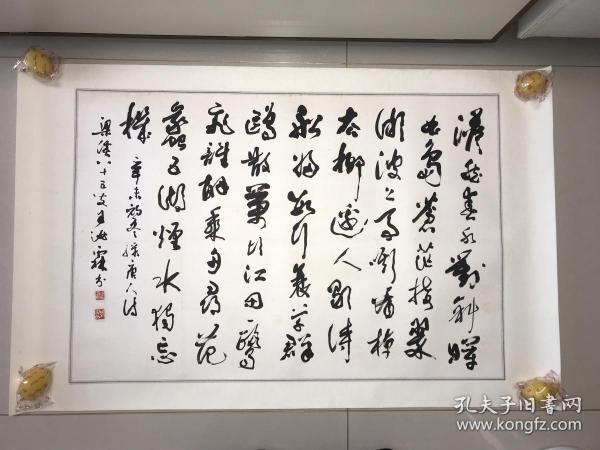 澹然空水對斜暉
曲島蒼茫接翠
微波上馬嘶看棹
去柳邊人歇待
船歸數叢沙草群
鷗散萬頃江田一鷺
飛誰解乘舟尋范
蠡五湖煙水獨忘
機
辛未初冬錄唐人詩
梁溪八十五叟王霖書
孔夫子旧書网
www.kongfz.com